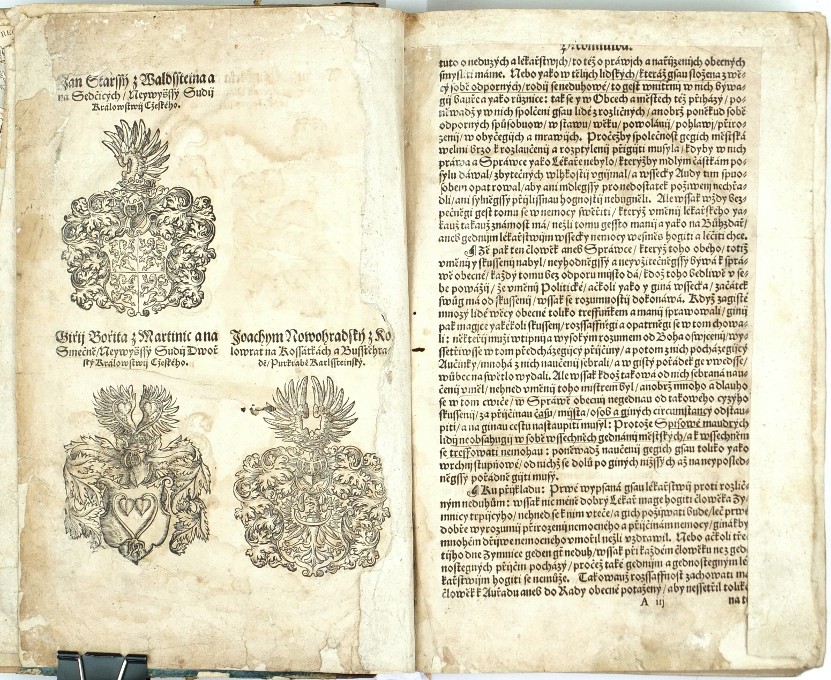 Jan Starssý z Waldssteina a
na Sedčicých / Neywyšssý Sudij
Kralowstwij Cžeského.
Giřij Bořita z Martinic a na
Smečně / Neywyšssý Sudij Dwor
ský Kralowstwij Cžeského.
Joachym Nowohradský z Ko
lowrat na Kossátkách a Busstěhra
dě / Purkrabě Karlssteinský.
tuto o neduzých a lékařstwijch / to též o práwijch a nařijzenijch obecných
smysliti máme. Nebo yako w tělijch lidských / kteráž gsau složena z wě-
cý sobě odporných / rodij se neduhowé / to gest wnitřnij w nich býwa-
gij bauřca yako různice: tak se y w Obcech a městech též přiházý / po-
něwadž y w nich spolčeni gsau lidé z rozličných / anobrž poněkud sobě
odporných spůsobuow / w stawu / wěku / powolánij / pohlawij / přiro-
zenij / w obyčegijch a mrawijch. Pročežby společnost gegich městská
welmi brzo k rozlaučenij a rozptýlenij přigijti musyla / kdyby w nich
práwa a Správce yako Lékaře nebylo / kteryžby mdlým částkám po-
sylu dáwal / zbytečných wlhkostij vgijmal / a wssecky Audy tijm spuo-
sobem opatrowal / aby ani mdlegssý pro nedostatek požiwenij nechřa-
dli / ani sylněgssý přijlissnau hognostij nebugněli. Ale wssak wždy bez-
pečněgi gest tomu se w nemocy swěřiti / kterýž vměnij lékařského ya-
kauž takauž známost má / nežli tomu gessto manij a yako na Bůhzdař /
aneb gednijm lékařstwijm wssecky nemocy wesměs hogiti a léčiti chce.
Že pak ten člowěk aneb Správce / kterýž toho obého / totiž
vměnij y skussenij nabyl / neyhodněgssý a neyvžitečněgssý býwá k sprá-
wě obecné / každý tomu bez odporu mijsto dá / kdož toho bedliwě v se-
be powážij / že vměnij Politické / ačkoli yako y giná wssecka / začátek
swůg má od skussenij / wssak se rozumnostij dokonáwá. Když zagisté
mnozý lidé wěcy obecné toliko treffuňkem a manij spravowali / ginij
pak magice yakékoli skussenij / rozssaffněgi a opatrněgi se w tom chowa-
li: někteřij muži wtipnij a wysokým rozumem od Boha oswjcenij / wy-
ssetřiwsse w tom předcházegijcý přijčiny / a potom z nich pocházegijcý
Aučinky / mnohá z nich naučenij sebrali / a w gistý pořádek ge wwedsse /
wůbec na swětlo wydali. Ale wssak kdož takowá od nich sebraná nau-
čenij vměl / nehned vměnij toho mistrem byl / anobrž mnoho a dlauho
se w tom cwiče / w Správě obecnij negednau od takowého cyzýho
skussenij / za přijčinau času / mijsta / osob a giných circumstancý odstau-
piti / a na ginau cestu nastaupiti musyl: Protože Spisowé maudrých
lidij neobsahugij w sobě wssechněch gednánij městských / a k wssechněm
se treffowati nemohau: poněwadž naučenij gegich gsau toliko yako
wrchnij stupňowé / od nichž se dolů po giných nižssých až na neyposled-
něgssý pořádně gijti musý.
Ku přijkladu: Prwé wypsaná gsau lékařstwij proti rozlič-
ným neduhům: wssak nic méně dobrý Lékař mage hogiti člowěka Zy-
mnicy trpijcýho / nehned se k nim vteče / a gich požijwati bude / leč prwé
dobře wyrozumij přirozenij nemocného a přijčinám nemocy / ginák by
mnohém dřijwe nemocného vmořil nežli vzdrawil. Nebo ačkoli tře-
tijho dne Zymnice geden gt neduh / wssak při každém člowěku ne z ged-
nostegných přijčin pocházý / pročež také gednijm a gednostegným lé-
kařstwijm hogiti se nemůže. Takowauž rozssaffnost zachowati má
člowěk k Auřadu aneb do Rady obecné potažený / aby nessetřil toliko
A iij